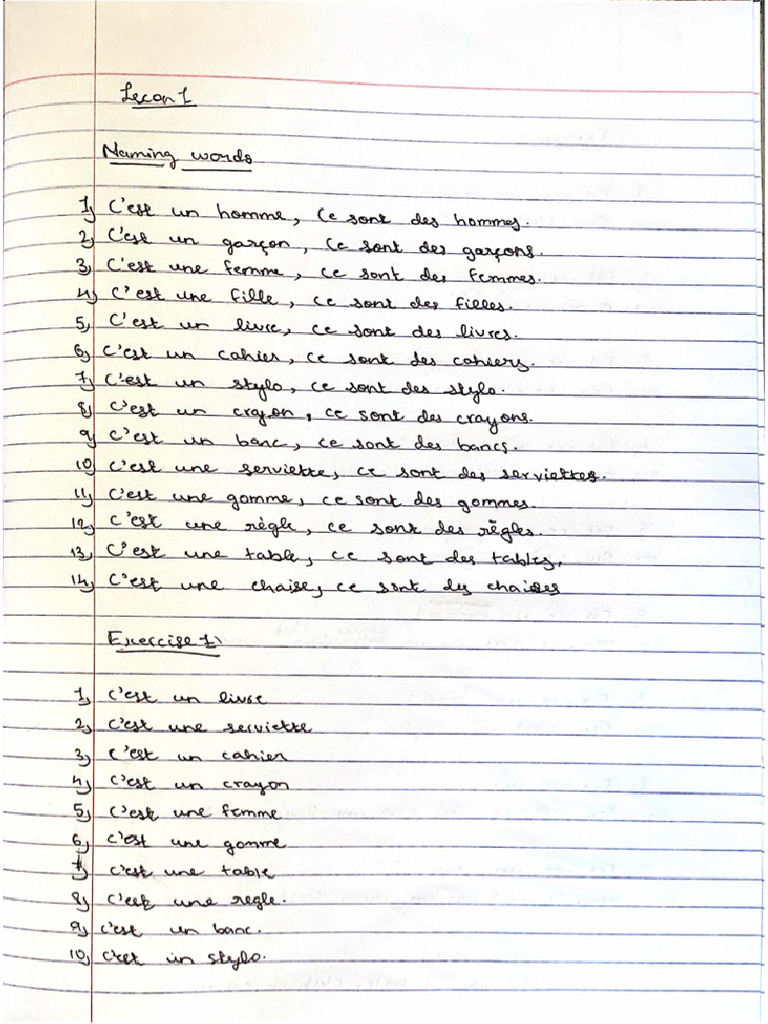 Lecon 1
Naming words
1) C'est un homme, Ce sont des hommes.
2) C'est un garçon, Ce sont des garçons.
3) C'est une femme, ce sont des femmes.
4) C'est une fille, ce sont des filles.
5) C'est un livre, ce sont des livres.
6) C'est un cahier, ce sont des cahiers.
7) C'est un stylo, ce sont des stylo.
8) C'est un crayon, ce sont des crayons.
9) C'est un banc, ce sont des bancs.
10) C'est une serviette, ce sont des serviettes.
11) C'est une gomme, ce sont des gommes.
12) C'est une règle, ce sont des règles.
13) C'est une table, ce sont des tables.
14) C'est une chaise, ce sont des chaises
Exercise 1)
1) C'est un livre
2) C'est une serviette
3) C'est un cahier
4) C'est un crayon
5) C'est une femme
6) C'est une gomme
7) C'est une table
8) C'est une regle.
9) C'est un banc.
10) C'est un stylo.